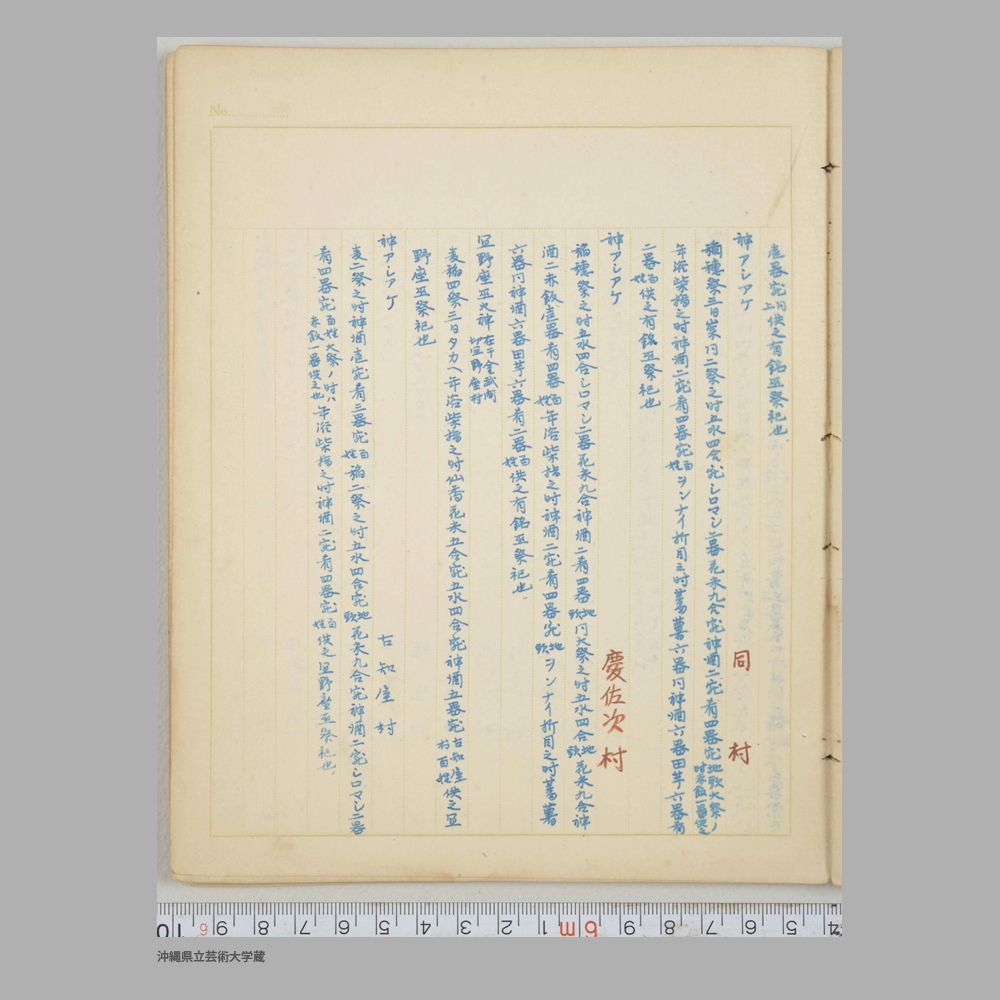 壱器宛同上供之有銘巫祭祀也
神アシアゲ 同村
稲穂祭三日崇同二祭之時五水四合宛シロマシ二器花米九合宛神酒二宛肴四器宛地頭大祭ノ時赤飯一器供之
年浴柴指之時神酒二宛肴四器宛百姓ヲンナイ折目之時蕃薯六器同神酒六器田芋六器肴
二器百姓供之有銘巫祭祀也
神アシアゲ 慶佐次村
稲穂祭之時五水四合シロマシ二器花米九合神酒二肴四器地頭同大祭之時五水四合地頭花米九合神
酒二赤飯壱器肴四器百姓年浴柴指之時神酒二宛肴四器宛地頭ヲンナイ折目之時蕃薯
六器同神酒六器田芋六器肴二器百姓供之有銘巫祭祀也.
宜野座巫火神在于金武間切宜野座村
麦稲四祭三日タカヘ年浴柴指之時仙香花米五合宛五水四合宛神酒五器宛古知屋村百姓供之宜
野座巫祭祀也
神アシアゲ 古知屋村
麦二祭之時神酒壱宛肴三器宛百姓稲二祭之時五水四合宛地頭花米九合宛神酒二宛シロマシ二器
肴四器宛百姓大祭ノ時ハ赤飯一器供之也年浴柴指之時神酒二宛肴四器宛百姓供之宜野座巫祭祀也.
No.
沖縄県立芸術大学蔵